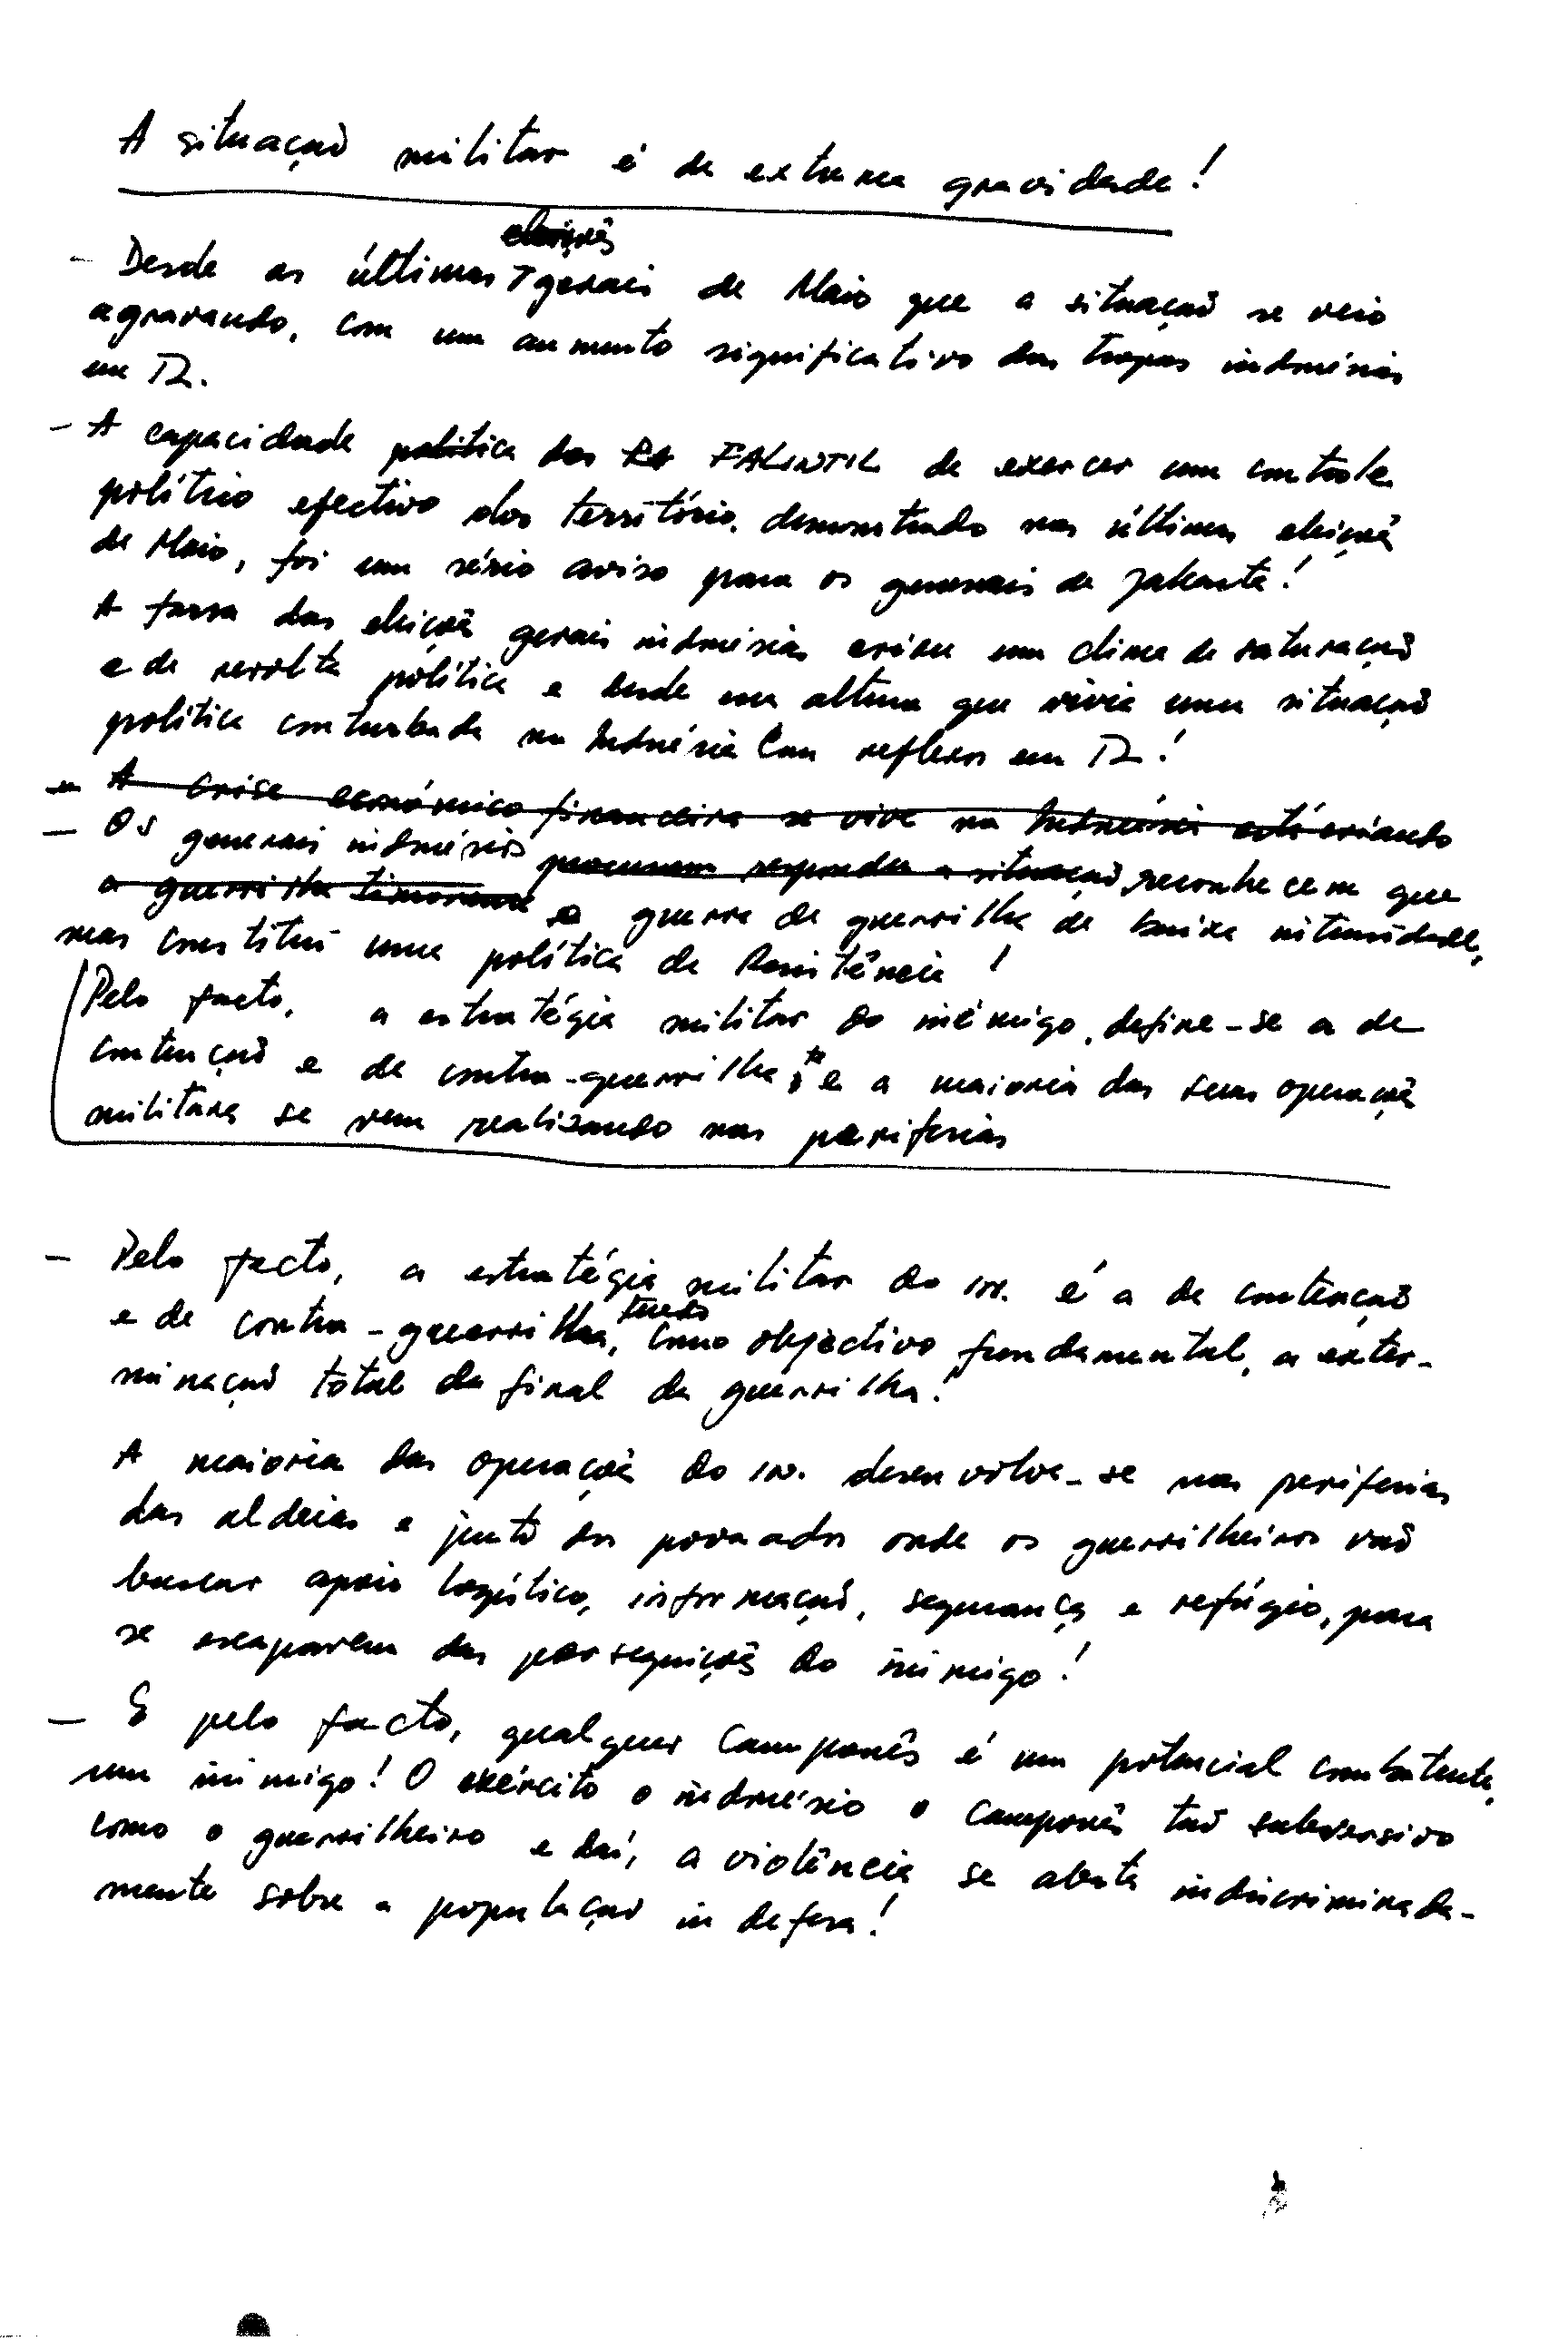 A situação militar é de extrema gravidade!
eleições
- Desde as últimas gerais de Maio que a situação se veio
agravando, com um aumento significativo das tropas indonésias
em TL.
- A capacidade política das FALINTIL de exercer um controle
político efectivo dos território, demonstrado nas últimas eleições
de Maio, foi um sério aviso para os generais de Jakarta!
A farsa das eleições gerais indonésias criou um clima de saturação
e de revolta política e desde essa altura que vivia uma situação
política conturbada na Indonésia com reflexos em TL!
- A crise económico financeira se vive na Indonésia está criando
- Os generais indonésios procuram responder a situação, reconhecem que
a guerrilha timorense a guerra de guerrilha de baixa intensidade,
mas constitui uma política de Resistência!
Pelo facto, a estratégia militar do inimigo, define-se a de
contenção e de contra-guerrilha, e a maioria das suas operações
militares se vem realizando nas periferias
- Pelo facto, a estratégia militar do in. é a de contenção
tendo
e de contra-guerrilha, como objectivo fundamental, a exter-
minação total da final da guerrilha!
A maioria das operações do in. desenvolve-se nas periferias
das aldeias e junto dos povoados onde os guerrilheiros vão
buscar apoio logístico, informação, segurança e refúgio, para
se escaparem das perseguições do inimigo!
- E pelo facto, qualquer camponês é um potencial combatente,
um inimigo! O exército o indonésio o camponês tão subversivo
como o guerrilheiro e daí, a violência se abate indiscriminada-
mente sobre a população indefesa!